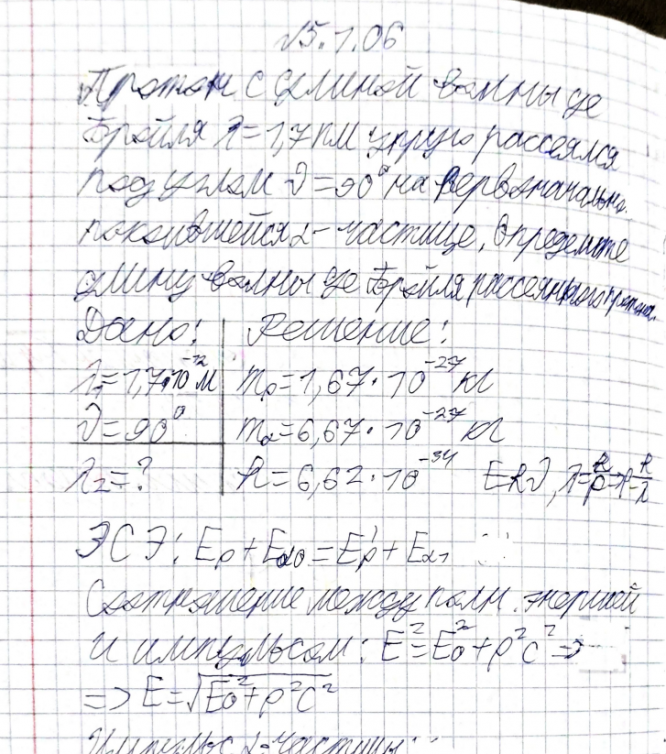 √5.1.06
Протон с длиной волны де
Бройля λ=1,7 пм упруго рассеялся
под углом ϑ=90° на первоначально
покоившейся α-частице. Определите
длину волны де Бройля рассеянного протона.
Дано: Решение:
λ₁=1,7·10⁻¹² м mₚ=1,67·10⁻²⁷ кг
ϑ=90° mα=6,67·10⁻²⁷ кг
λ₂=? h=6,62·10⁻³⁴ λ=h/p⇒p=h/λ
ЗСЭ: Eₚ+Eα₀=Eₚ'+Eα₁
Соотношение между полн. энергией
и импульсом: E²=E₀²+p²c² ⇒
=> E=√(E₀²+p²c²)
Импульс α-частицы: